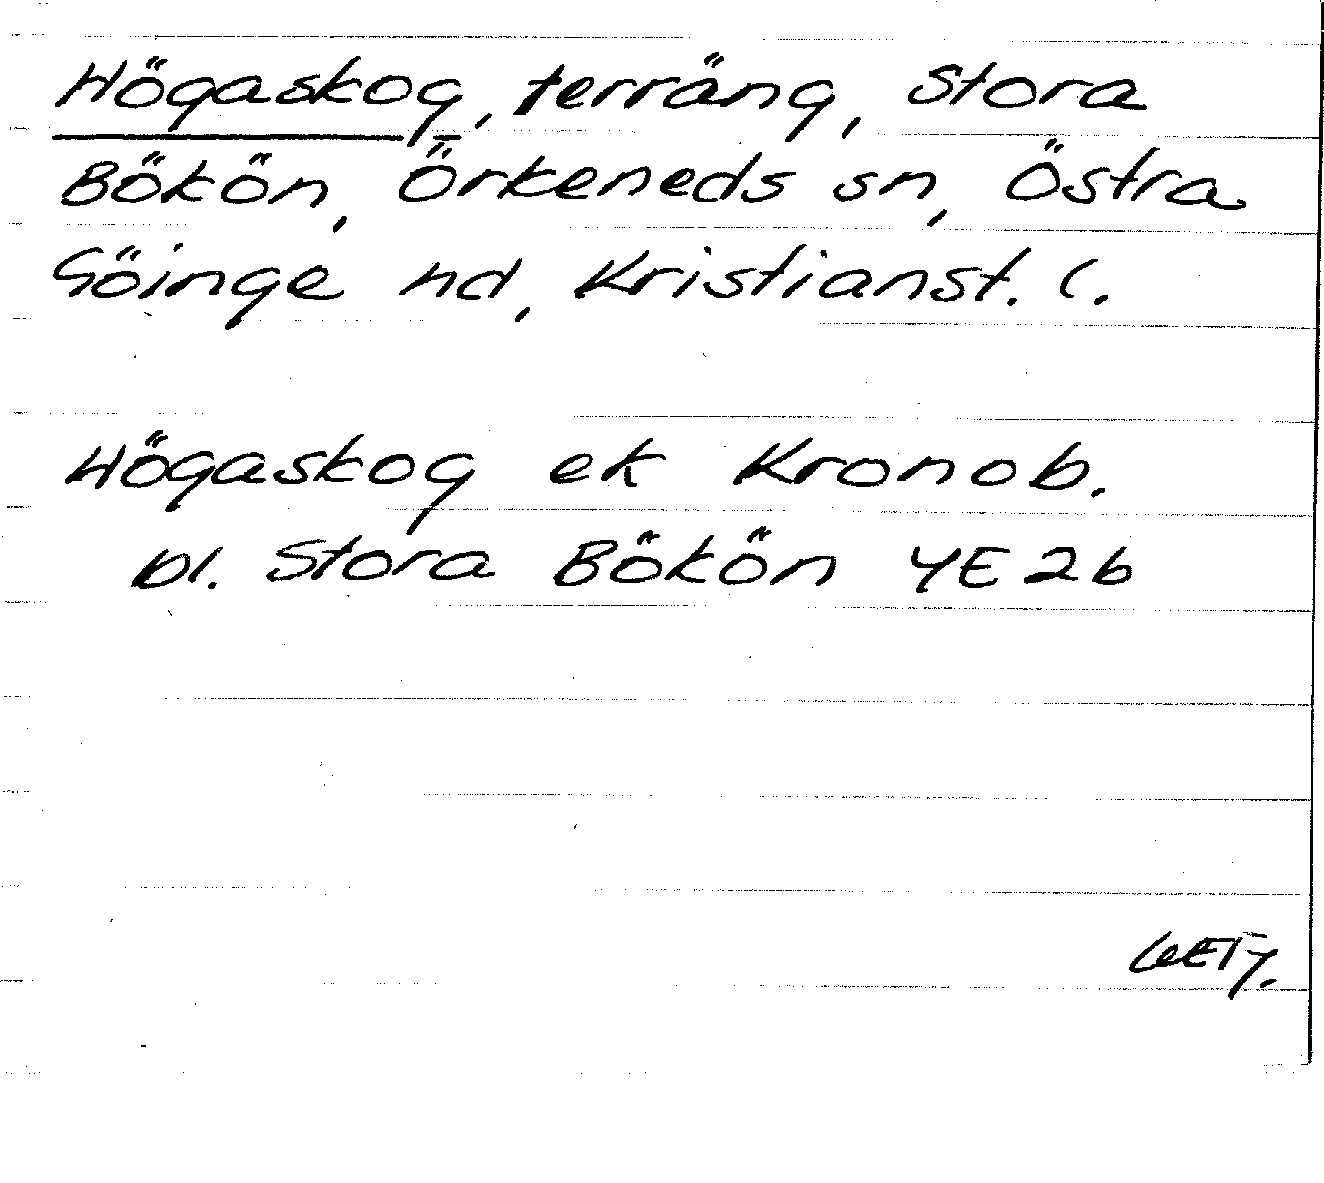 Högaskog, terräng, Stora
Bökön, Örkeneds sn, Östra
Göinge hd, Kristianst. l.
Högaskog ek Kronob.
bl. Stora Bökön 4E2b